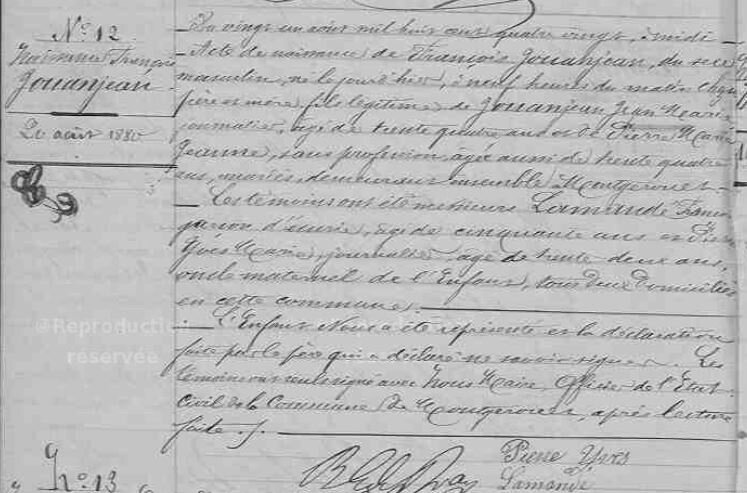 N° 12
Naissance François
Jouanjean
20 août 1880
Du vingt un août mil huit cent quatre vingt, à midi
Acte de naissance de François Jouanjean, du sexe
masculin, né le jour d'hier, à neuf heures du matin chez
père et mère, fils légitime de Jouanjean Jean Marie
journalier, âgé de trente quatre ans et de Pierre Marie
Jeanne, sans profession, âgée aussi de trente quatre
ans, mariés, demeurant ensemble Montgerouet
Les témoins ont été messieurs Lamandé François
garçon d'écurie, âgé de cinquante ans et Pierre
Yves Marie, journalier, âgé de trente deux ans,
oncle maternel de l'Enfant, tous deux domiciliés
en cette commune.
L'Enfant Nous a été représenté et la déclaration
faite par le père qui a déclaré ne savoir signer. Les
témoins ont seuls signé avec Nous Maire, Officier de l'Etat
Civil de la Commune de, après lecture
faite.
Pierre Yves
Lamandé
N° 13
@Reproduction
réservée